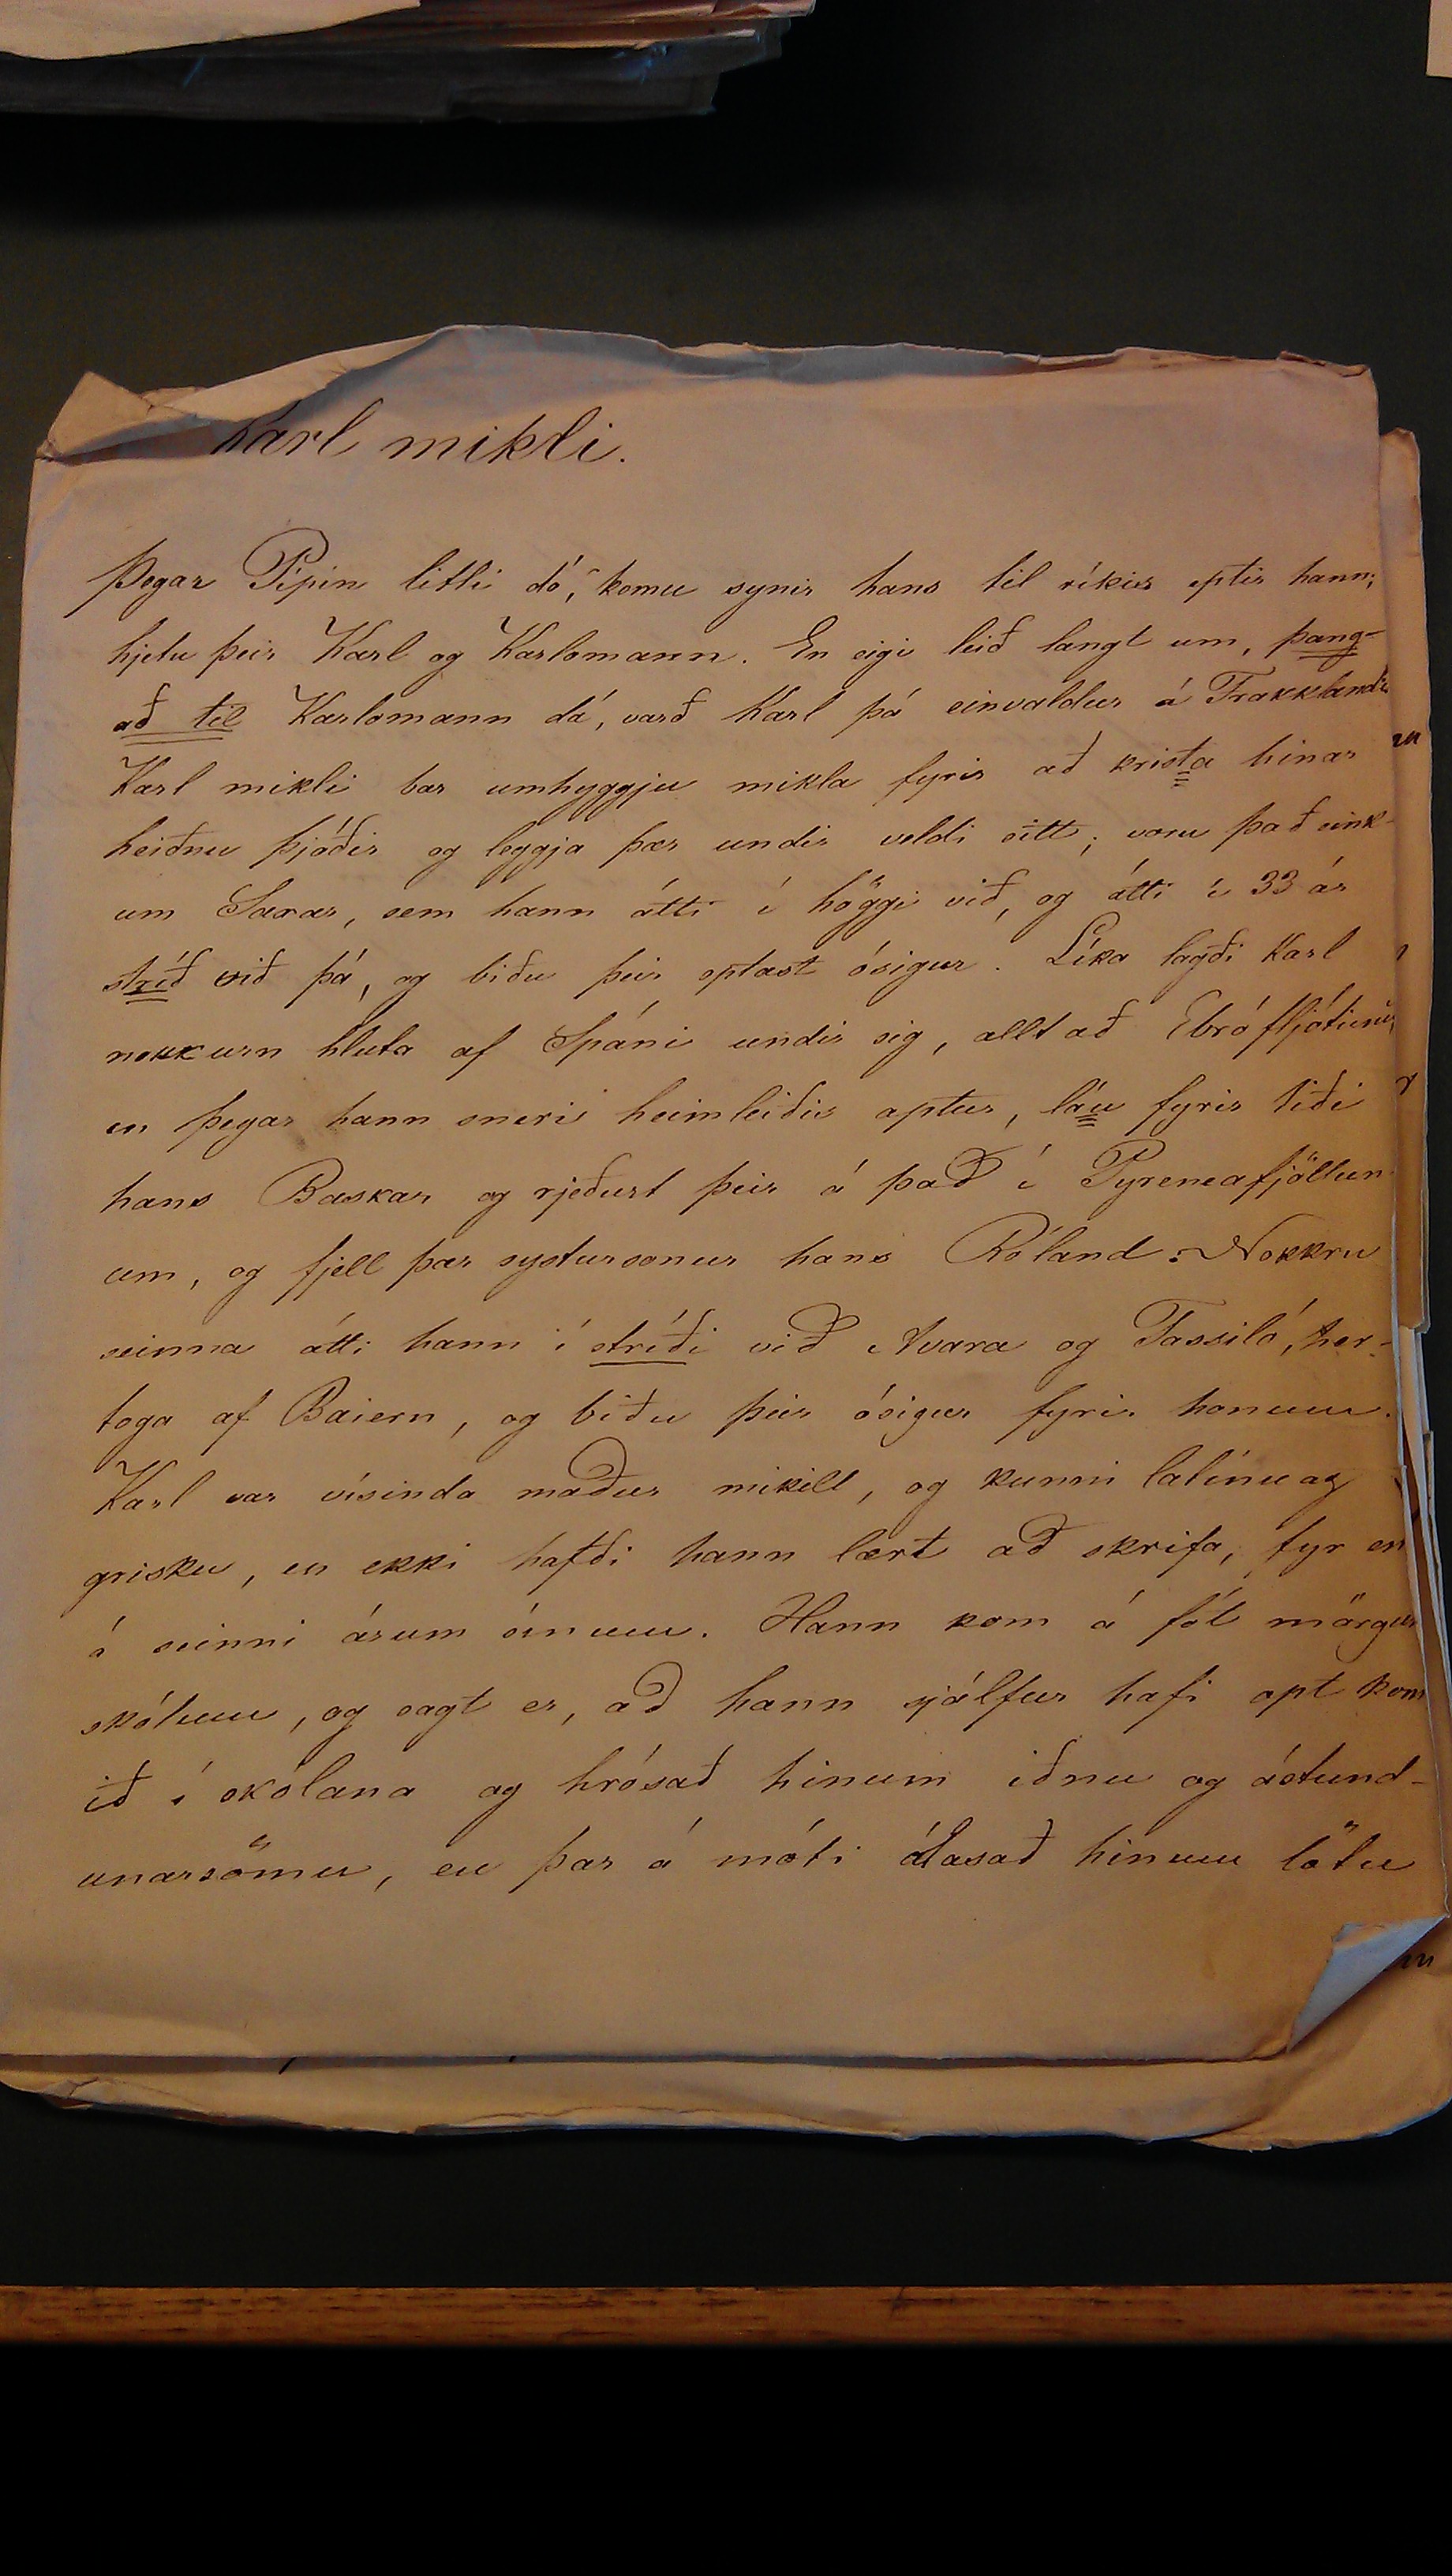 Karl mikli.
Þegar Pipin litli dó, komu synir hans til ríkis eptir hann;
hjetu þeir Karl og Karlomann. En eigi leið langt um, þang-
að til Karlomann dó, varð Karl þá einvaldur á Frakklandi
Karl mikli bar umhyggju mikla fyrir að krista hinar
heiðnu þjóðir og leggja þær undir veldi sitt; voru það eink-
um Saxar, sem hann átti í höggi við, og átti í 33 ár
stríð við þá, og biðu þeir optast ósigur. Líka lagði Karl
nokkurn hluta af Spáni undir sig, allt að Ebró fljótinu,
en þegar hann sneri heimleiðis aptur, láu fyrir liði
hans Baskar og rjeðust þeir á það í Pyreneafjöllun
um, og fjell þar systursonur hans Róland. Nokkru
seinna átti hann í stríði við Avara og Tassiló, her-
toga af Baiern, og biðu þeir ósigur fyrir honum.
Karl var vísinda maður mikill, og kunni latínu og
grisku, en ekki hafði hann lært að skrifa, fyr en
á seinni árum sínum. Hann kom á fót mörgum
skólum, og sagt er, að hann sjálfur hafi opt kom
ið í skólana og hrósað hinum iðnu og ástund-
unarsömu, en þar á móti álasað hinum lötu